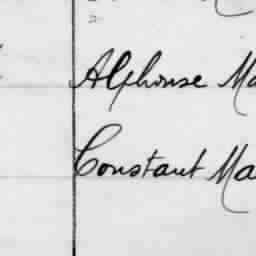 Alphonse Ma
Constant Ma